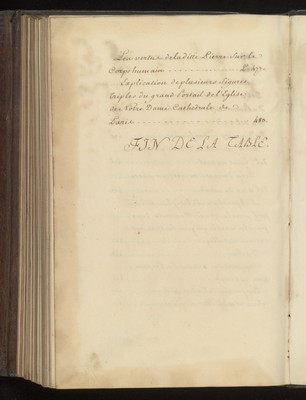 La vertus de ladite Pierre sur le
Corps humain
Explication de plusieurs figures
triples du grand Portail de l'Eglise
de Nôtre Dame Cathedrale de
Paris
FIN DE LA TABLE.